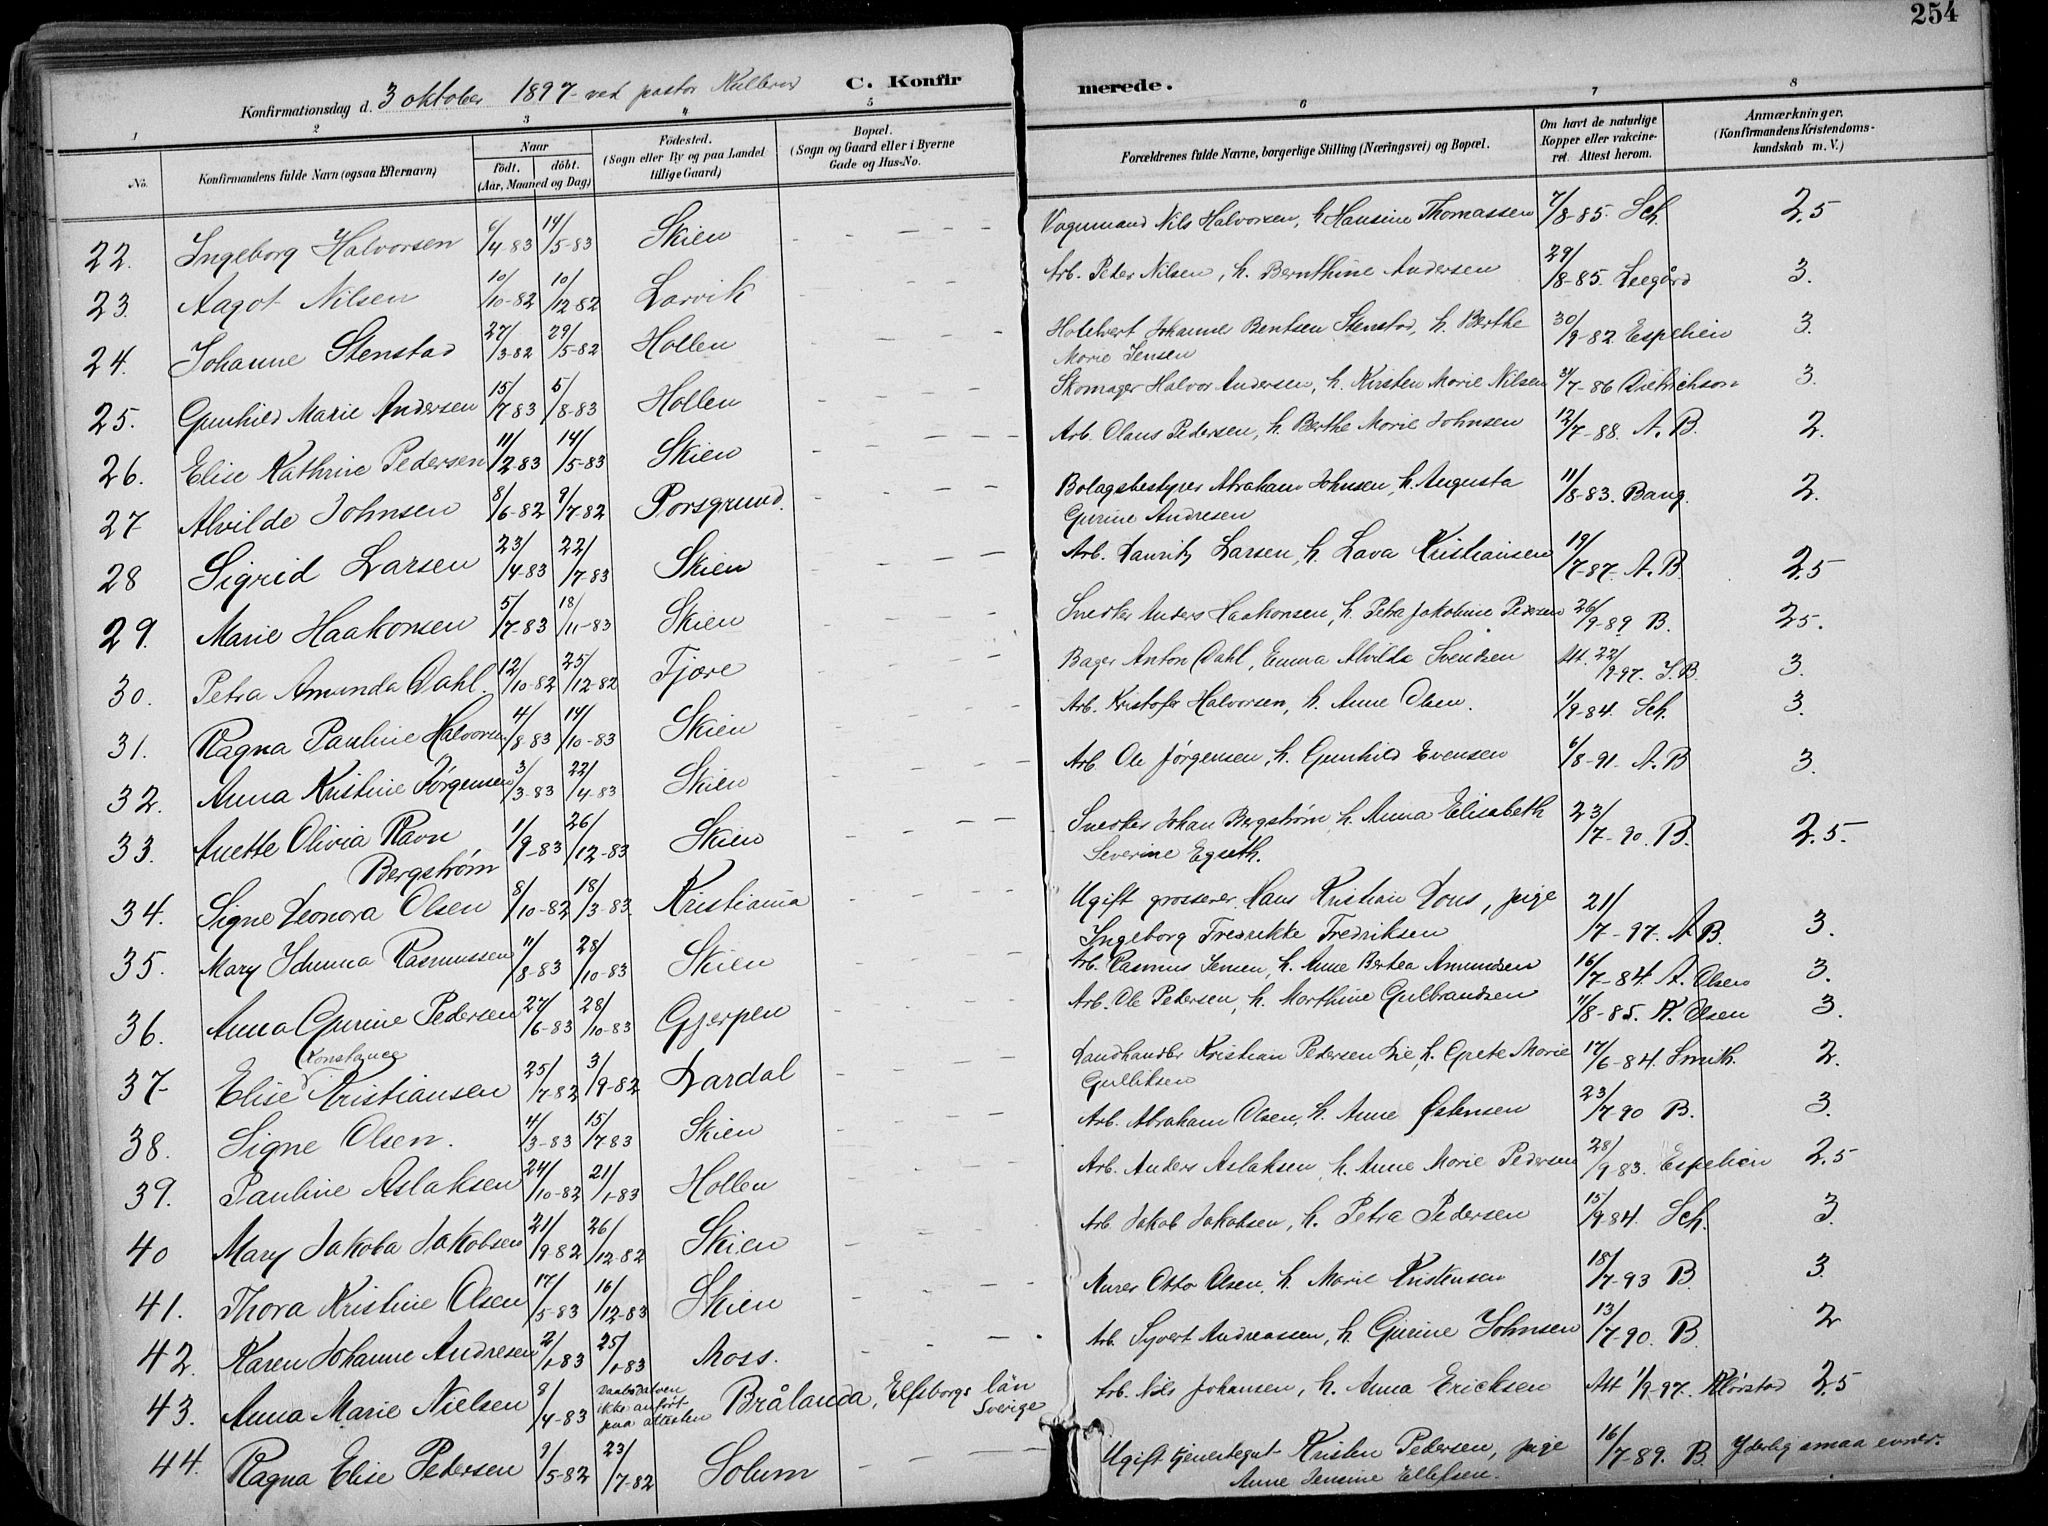 254
Konfirmationsdag d. 3 oktober 1897 ved pastor
C. Konfirmerede.
1 2 3 4 5 6 7 8
No. Konfirmandens fulde Navn (ogsaa Efternavn) Naar født. døbt. (Aar, Maaned og Dag) Fødested. (Sogn eller By og paa Landet tillige Gaard) Bopæl. (Sogn og Gaard eller i Byerne Gade og Hus-No. Forældrenes fulde Navne, borgerlige Stilling (Næringsvei) og Bopæl. Om havt de naturlige Kopper eller vakcineret. Attest herom. Anmærkninger. (Konfirmandens Kristendomskundskab m. V.)
22. Ingeborg Halvorsen 6/4-83 14/5-83 Skien Vognmand Nils Halvorsen, h. Hansine Thomassen 7/8-85. Sch. 2,5
23. Aagot Nilsen 10/10-82 10/12-82 Larvik Arb. Peder Nilsen, h. Bernthine Andersen 29/8-85. Leegård 3.
24. Johanne Stenstad 27/3-82 29/5-82 Hollen Hotelvert Johannes Bentsen Stenstad, h. Berthe
Marie Jensen 30/9-82 Espelien 3.
25. Gunhild Marie Andersen 15/7-83 5/8-83 Hollen Skomager Halvor Andersen, h. Kirsten Marie Nilsen 31/7-86 Dietrichson 3.
26. Elise Kathrine Pedersen 11/2-83 14/5-83 Skien Arb. Olaus Pedersen, h. Berthe Marie Johnsen 12/7-88. A. B. 2.
27 Alvilde Johnsen 8/6-82 9/7-82 Porsgrund. Bolagsbestyrer Abraham Johnsen, h. Augusta
Gurine Andresen 11/8-83. Bang. 2.
28 Sigrid Larsen 23/4-83 22/7-83 Skien Arb. Lauritz Larsen, h. Lava Kristiansen 19/7-87. A. B. 2,5
29. Marie Haakonsen 5/7-83 18/11-83 Skien Snedker Anders Haakonsen, h. Petra Jakobine Pedersen 26/9-89. B. 2,5.
30. Petra Amunda Dahl. 12/10-82 25/12-82 Fjære Bager Anton Dahl, Emma Alvilda Svendsen Att. 22/9-97. J. B. 3.
31. Ragna Pauline Halvorsen 4/8-83 14/10-83 Skien Arb. Kristofer Halvorsen, h. Anne Olsen. 1/9-84. Sch. 3.
32. Anna Kristine Jørgensen 3/3-83 22/4-83 Skien Arb. Ole Jørgensen, h. Gunhild Evensen 6/8-91. A. B 3.
33. Anette Olivia Ravn
Bergstrøm 1/9-83 26/12-83 Skien Snedker Johan Bergstrøm h. Anna Elisabeth
Severine Egseth. 23/7-90. B. 2,5.
34. Signe Leonora Olsen 8/10-82 18/3-83. Kristiania Ugift grosserer Hans Kristian Dons, pige
Ingeborg Fredrikke Fredriksen 21/7-97. A B. 3.
35. Mary Idunna Rasmussen 11/8-83 28/10-83 Skien Arb. Rasmus Jensen, h. Anne Bertea Amundsen 16/7-84. A. Olsen 3.
36. Anna Gurine Pedersen 27/6-83 28/10-83 Gjerpen Arb. Ole Pedersen, h. Marthine Gulbrandsen 11/8-85. A. Olsen 3.
37 Elise Konstance Kristiansen 25/7-82 3/9-82 Lardal Landhandler Kristian Pedersen Lie, h. Grete Marie
Gulliksen 17/6-84. Smith. 2.
38. Signe Olsen. 4/3-83 15/7-83 Skien Arb. Abraham Olsen, h. Anne Johnsen 23/7-90 B. 3.
39. Pauline Aslaksen 24/10-82 21/1-83 Hollen Arb. Anders Aslaksen, h. Anne Marie Pedersen 28/9-83. Espelien 2,5
40 Mary Jakoba Jakobsen 21/9-82 26/12-82 Skien Arb. Jakob Jakobsen, h. Petra Pedersen 15/9-84. Sch. 3.
41. Thora Kristine Olsen 17/5-83 16/12-83 Skien Murer Otto Olsen, h. Marie Kristensen 18/7-93 B. 3.
42. Karen Johanne Andresen 2/1-83 25/1-83 Moss. Arb. Syvert Andreassen, h. Gurine Johnsen 13/7-90. B. 2
43. Anna Marie Nielsen 8/4-83 Daabsdatoen
ikke anført
paa attesten Brålanda, Elfsborgs län
Sverige Arb. Nils Johansen, h. Anna Ericksen Att 1/9-97. Rörstad 2,5
44. Ragna Elise Pedersen 9/5-82 23/7-82 Solum Ugift tjenestegut Kristen Pedersen, pige
Anne Jensine Ellefsen. 16/7-89. B. Yderlig smaa evner.